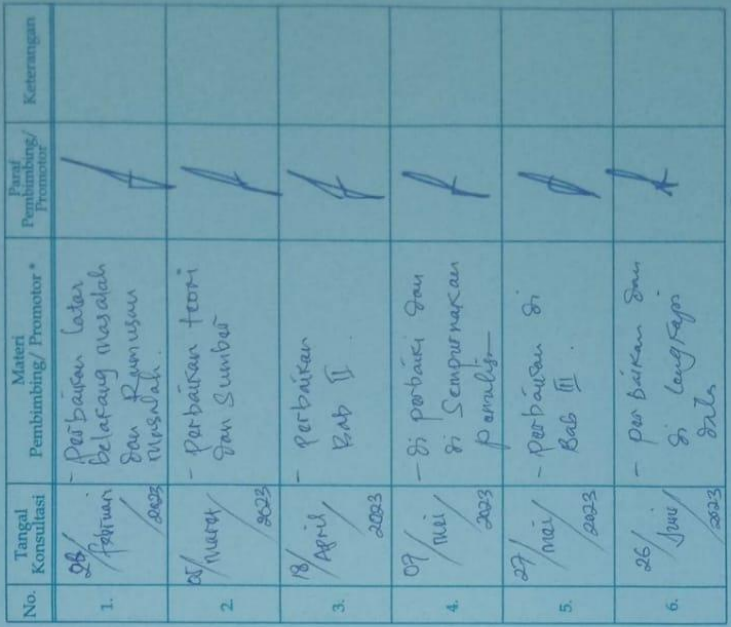 No.
Tangal
Konsultasi
Materi
Pembimbing/ Promotor *
Paraf
Pembimbing/
Promotor
Keterangan
1.
28/
februari
/2023
- Perbaikan latar
belakang masalah
dan Rumusan
masalah.
2.
05/maret/
2023
- Perbaikan teori
dan Sumber
3.
18/April/
2023
- Perbaikan
Bab II.
4.
09/mei/
2023
- di perbaiki dan
di Sempurnakan
penulisan
5.
27/mei/
2023
- Perbaikan di
Bab III.
6.
26/
Juni/
2023
- Perbaikan dan
di lengkapi
data